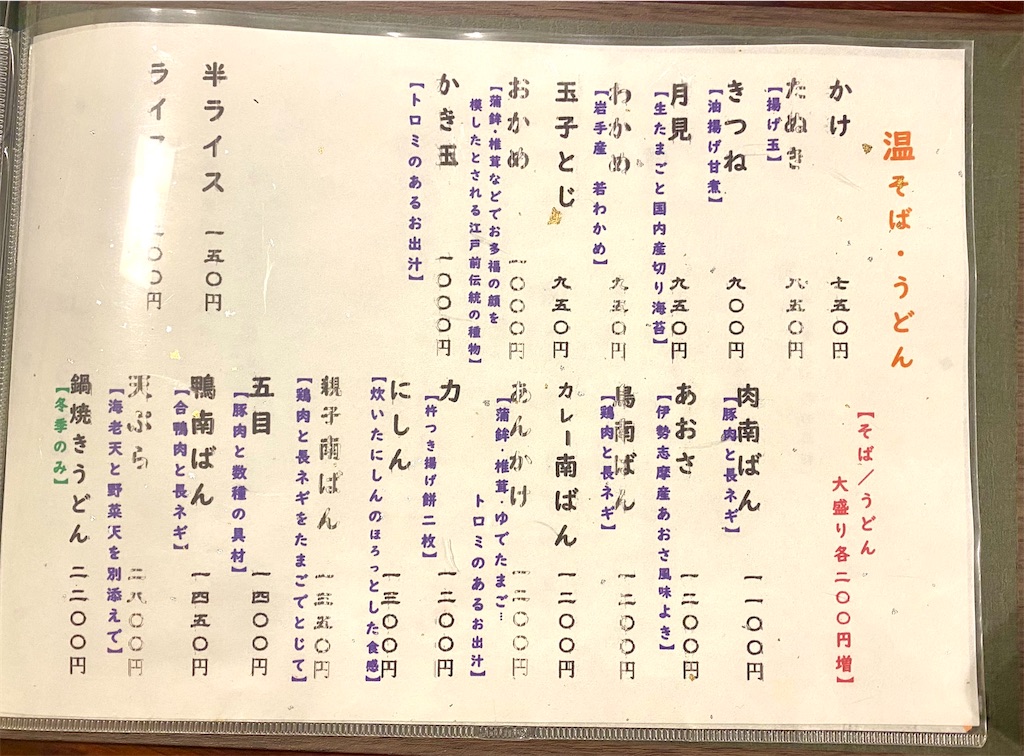 温そば・うどん
かけ 七五〇円
たぬき 八五〇円
【揚げ玉】
きつね 九〇〇円
【油揚げ甘煮】
月見 九五〇円
【生たまごと国内産切り海苔】
わかめ 九五〇円
【岩手産 若わかめ】
玉子とじ 九五〇円
おかめ 一〇〇〇円
【蒲鉾・椎茸などでお多福の顔を
模したとされる江戸前伝統の種物】
かき玉 一〇〇〇円
【トロミのあるお出汁】
半ライス 一五〇円
ライス 円
【そば／うどん
大盛り各二〇〇円増】
肉南ばん 一一〇〇円
【豚肉と長ネギ】
あおさ 一二〇〇円
【伊勢志摩産あおさ風味よき】
鳥南ばん 一二〇〇円
【鶏肉と長ネギ】
カレー南ばん 一二〇〇円
あんかけ 一二〇〇円
【蒲鉾・椎茸、ゆでたまご…
トロミのあるお出汁】
力 一二〇〇円
【杵つき揚げ餅二枚】
にしん 一三〇〇円
【炊いたにしんのほろっとした食感】
親子南ばん 一三五〇円
【鶏肉と長ネギをたまごでとじて】
五目 一四〇〇円
【豚肉と数種の具材】
鴨南ばん 一四五〇円
【合鴨肉と長ネギ】
天ぷら 〇〇円
【海老天と野菜天を別添えで】
鍋焼きうどん 二二〇〇円
【冬季のみ】